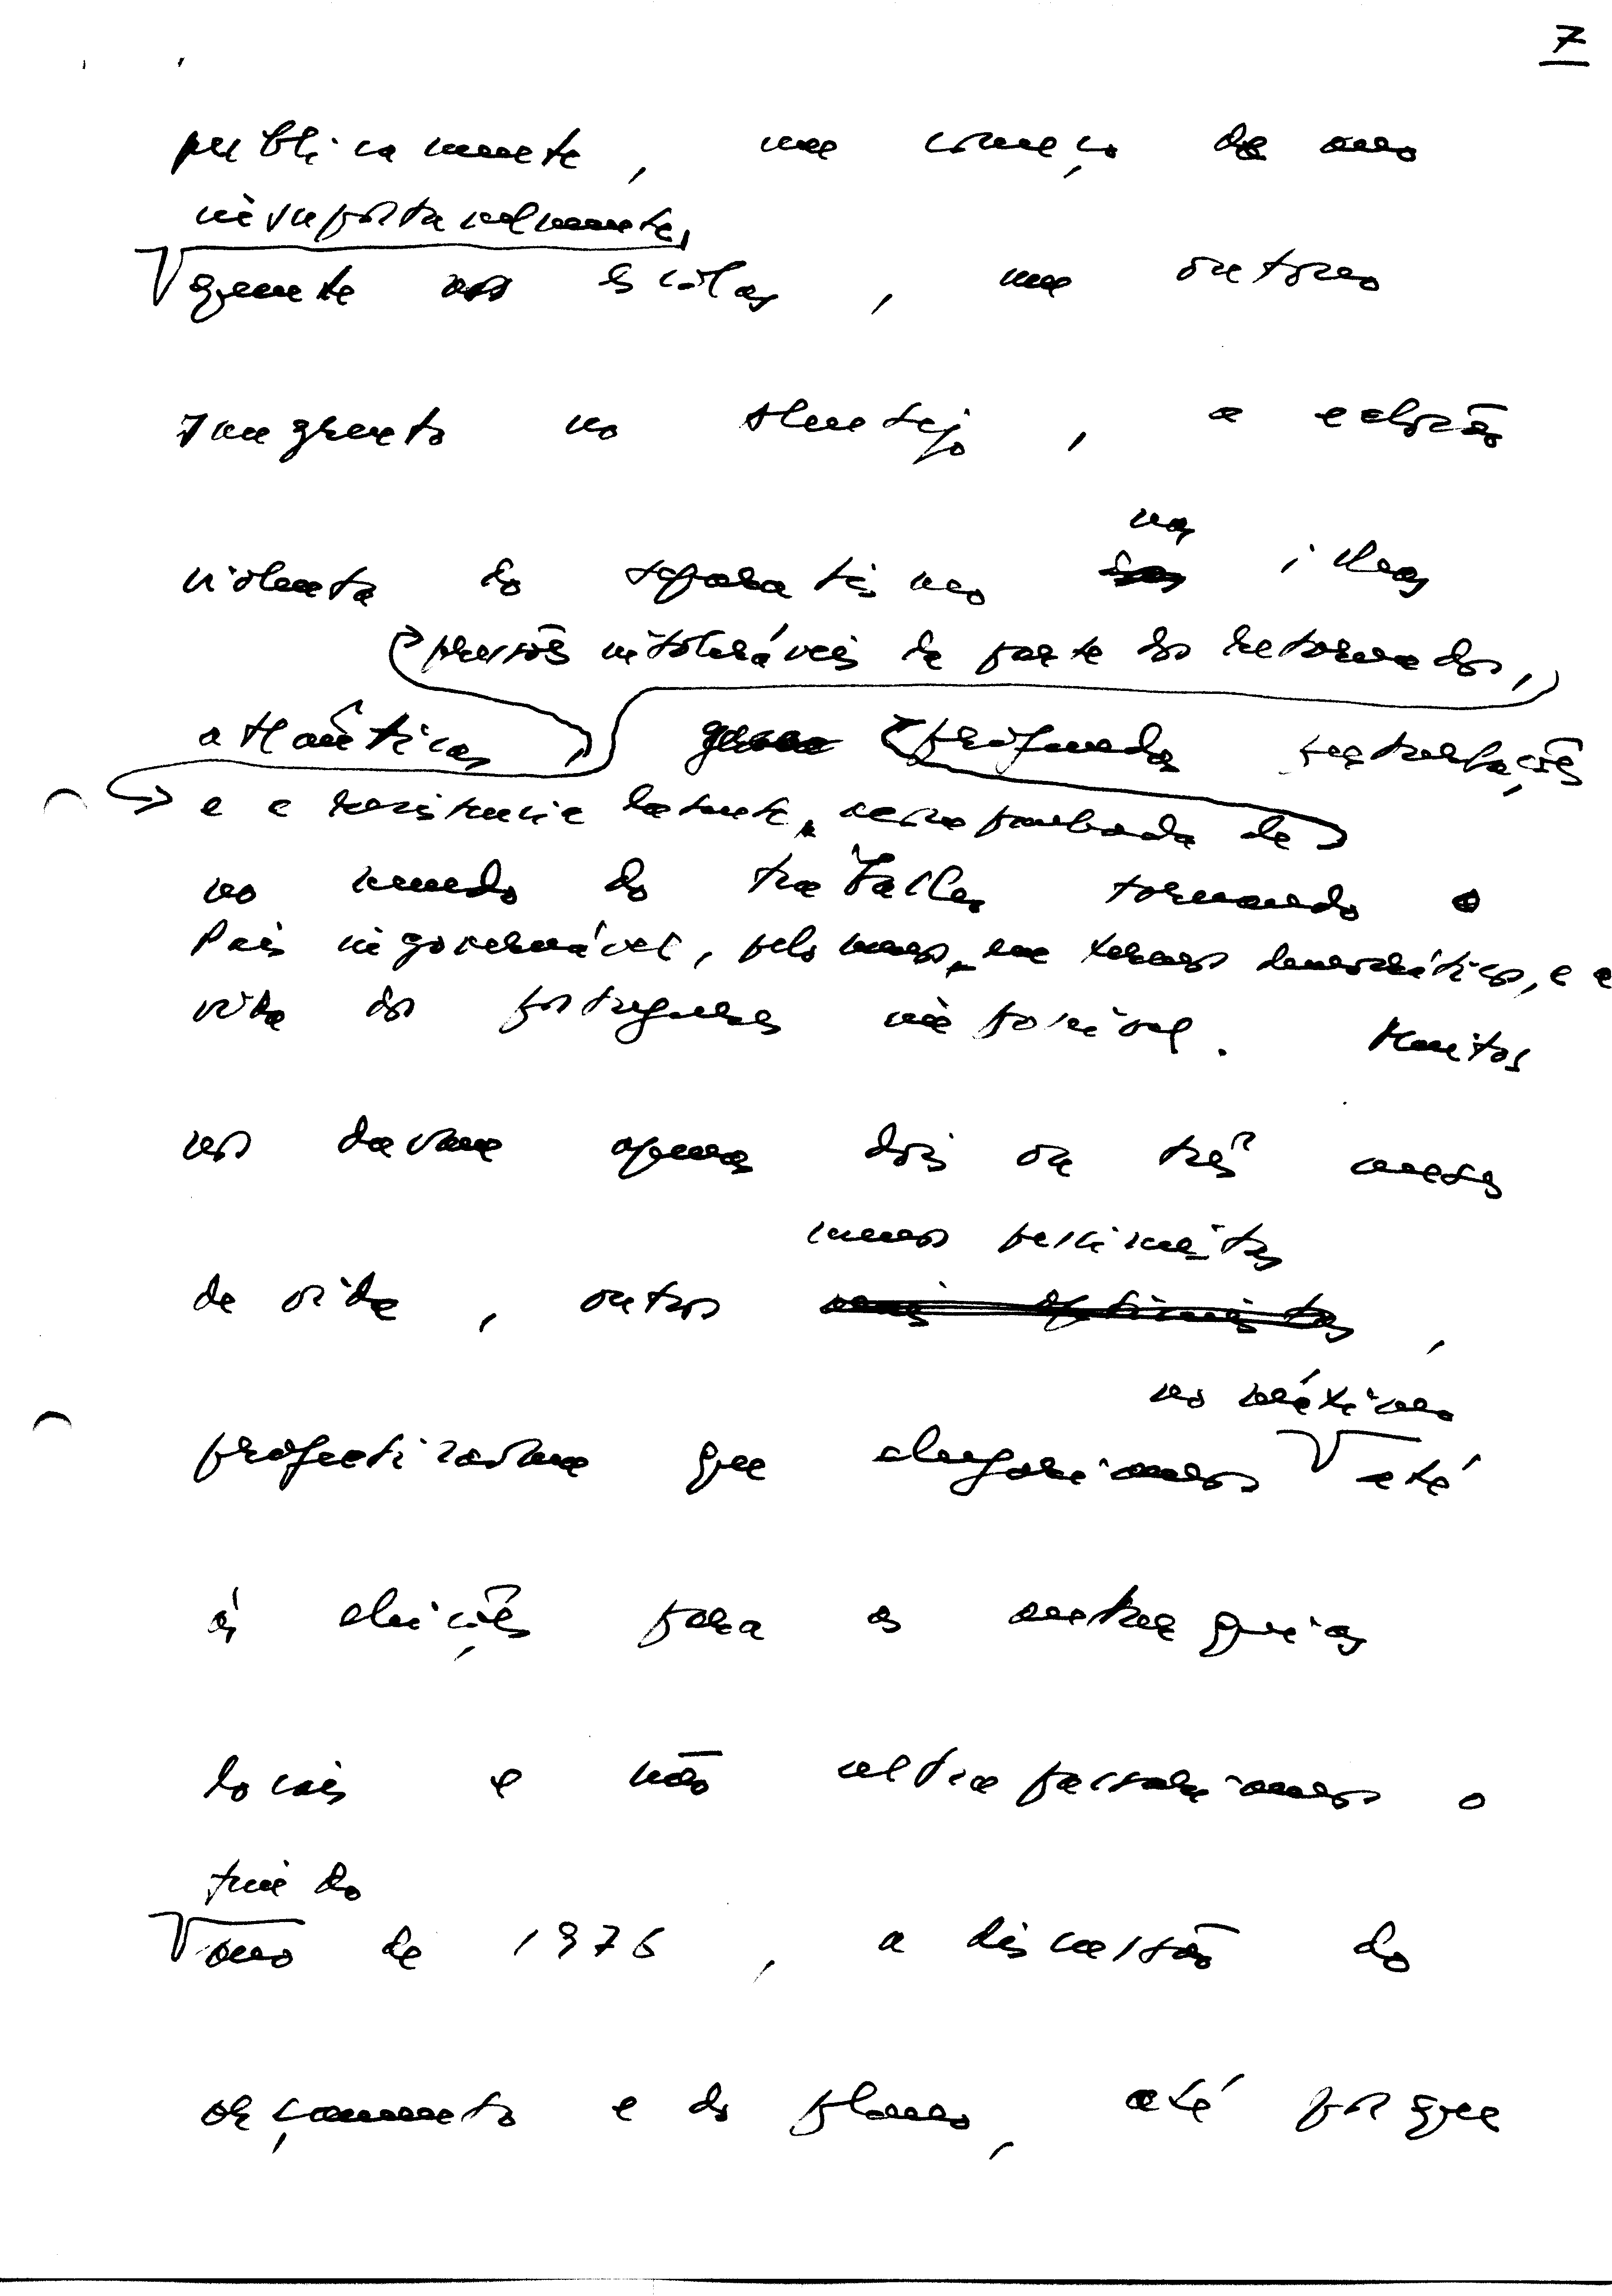 7
publicamente, um começo de ano
insuportavelmente,
quente nas escolas, um outono
sangrento no Alentejo, a eclosão
nas
violenta do separatismo das ilhas
pressões intoleráveis da parte dos retornados,
atlânticas, profundas perturbações
e a resistencia latente, acompanhada de
no mundo do trabalho tornando o
País ingovernável, pelo menos, em termos democráticos, e a
vida dos portugueses impossível. Muitos
nos davam apenas dois ou três meses
menos pessimistas
de vida, outros mais optimistas,
no máximo
profetizavam que chegariamos até
às eleições para as autarquias
locais e não ultrapassariamos o
fim do
ano de 1976, a discussão do
orçamento e do plano, até porque